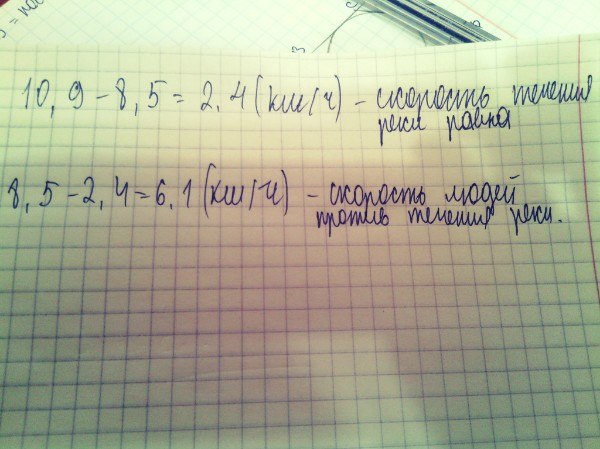 10,9-8,5=2,4(км/ч) - скорость течения
реки равна
8,5-2,4=6,1(км/ч) - скорость людей
против течения реки.